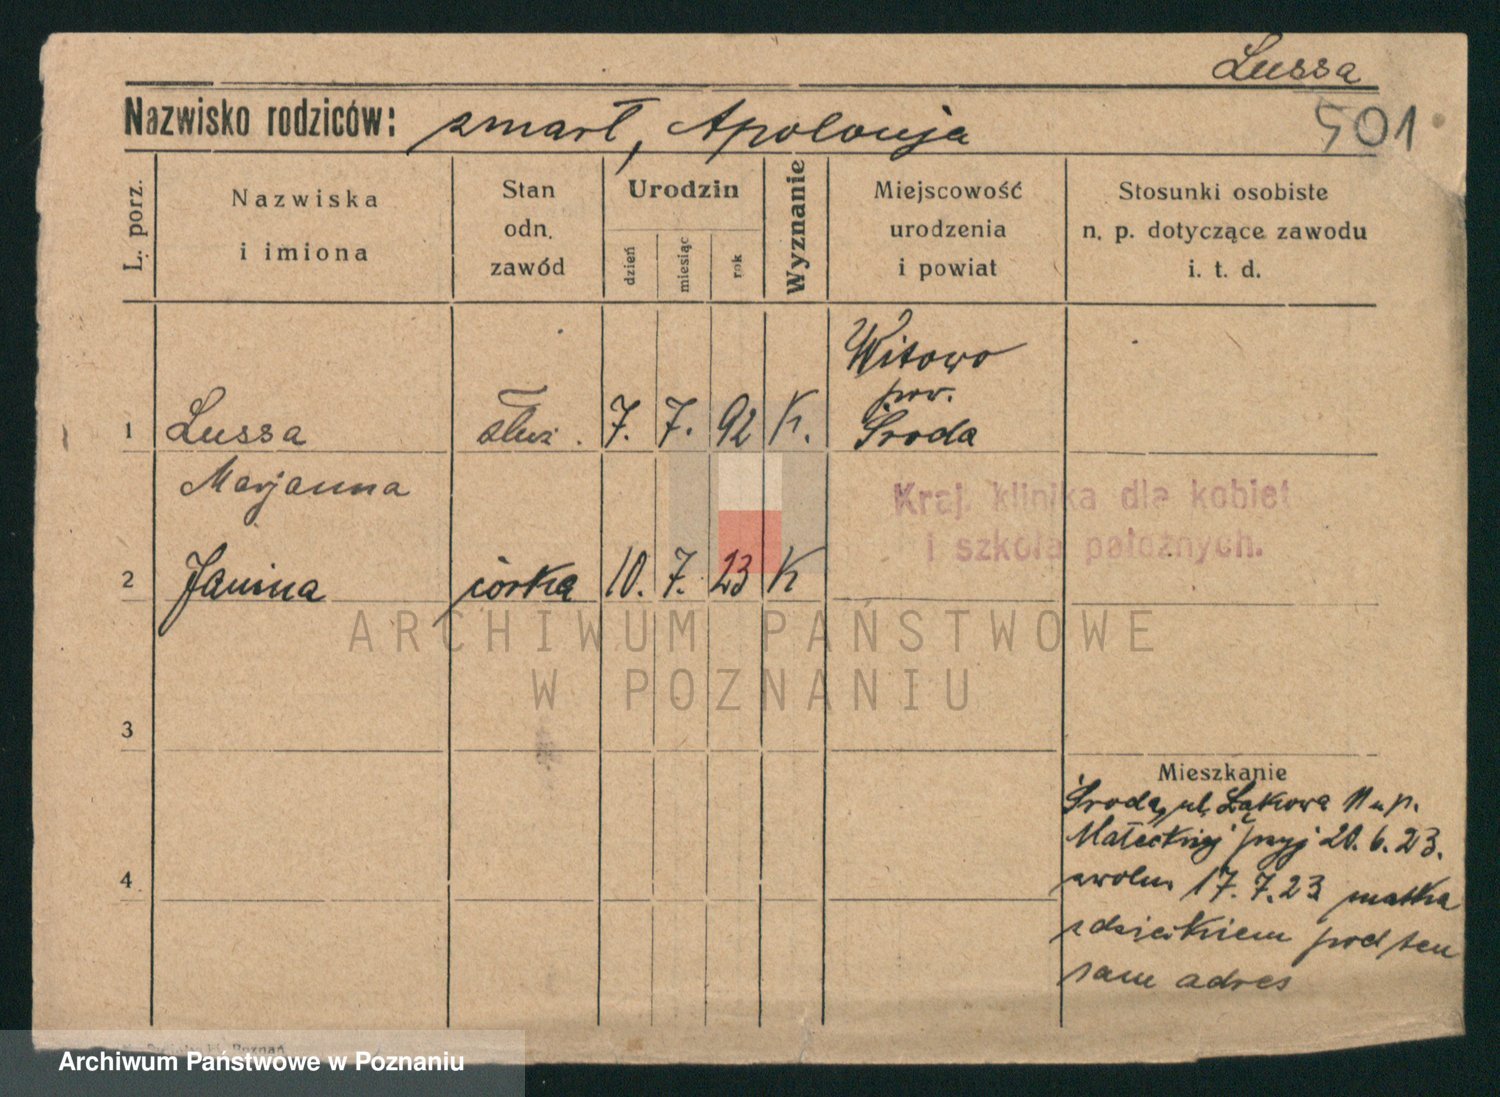 Lussa
501
Nazwisko rodziców: zmarł, Apolonja
L. porz.
Nazwiska
i imiona
Stan
odn.
zawód
Urodzin
dzień
miesiąc
rok
Wyznanie
Miejscowość
urodzenia
i powiat
Stosunki osobiste
n. p. dotyczące zawodu
i. t. d.
Witowo
pow.
1 Lussa służ. 7. 7. 92 K. Środa
Marjanna
Kraj. klinika dla kobiet
i szkoła położnych.
2 Janina córka 10. 7. 23 K
ARCHIWUM PAŃSTWOWE
W POZNANIU
3
Mieszkanie
Środa, ul. Łąkowa 11 u p.
Małeckiej przyj 20. 6. 23.
4
zwoln. 17. 7. 23 matka
z dzieckiem pod ten
sam adres
Poznań
Archiwum Państwowe w Poznaniu